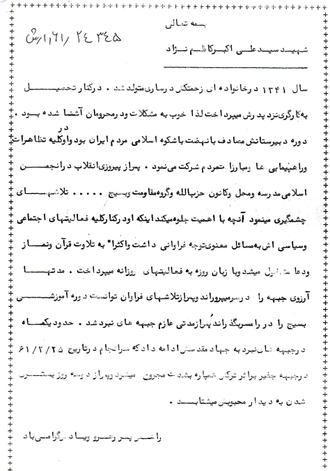 بسمه تعالی
ش/۱/۶۱/۲۴۳۴۵
شهید سید علی اکبر کاظم نژاد
سال ۱۳۴۱ در خانواده ای زحمتکش در ساری متولد شد . در کنار تحصیل
به کارگری نزد پدرش میپرداخت لذا خوب به مشکلات و رد محرومان آشنا شده بود .
دوره دبیرستانش مصادف با نهضت باشکوه اسلامی مردم ایران بود و او در کلیه تظاهرات
و راهپیمایی ها و مبارزات مردم شرکت می‌نمود . پس از پیروزی انقلاب در انجمن
اسلامی مدرسه و محل و کانون حزب‌الله و گروه مقاومت و بسیج ..... تلاشهای
چشمگیری مینمود آنچه با اهمیت جلوه میکند اینکه او در کنار کلیه فعالیتهای اجتماعی
و سیاسی اش به مسائل معنوی توجه فراوانی داشت و اکثرا" به تلاوت قرآن و نماز
و دعا مشغول میشد و با زبان روزه به فعالیتهای روزانه میپرداخت . مدتها
آرزوی جبهه را در سر میپروراند و پس از تلاشهای فراوان توانست دوره آموزشی
بسیج را در رامسر بگذراند پس از مدتی عازم جبهه های نبرد شد . حدود یکماه
در جبهه های نبرد به جهاد مقدس ادامه داد که سرانجام در تاریخ ۶۱/۲/۲۵
در جبهه جفیر بر اثر ترکش خمپاره بشدت مجروح میشود و پس از دو سه روز بستری
شدن به دیدار محبوبش میشتابد .
راهش پر رهرو و یادش گرامی باد